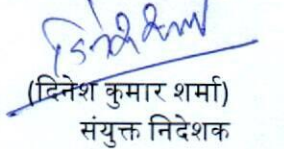 (दिनेश कुमार शर्मा)
संयुक्त निदेशक